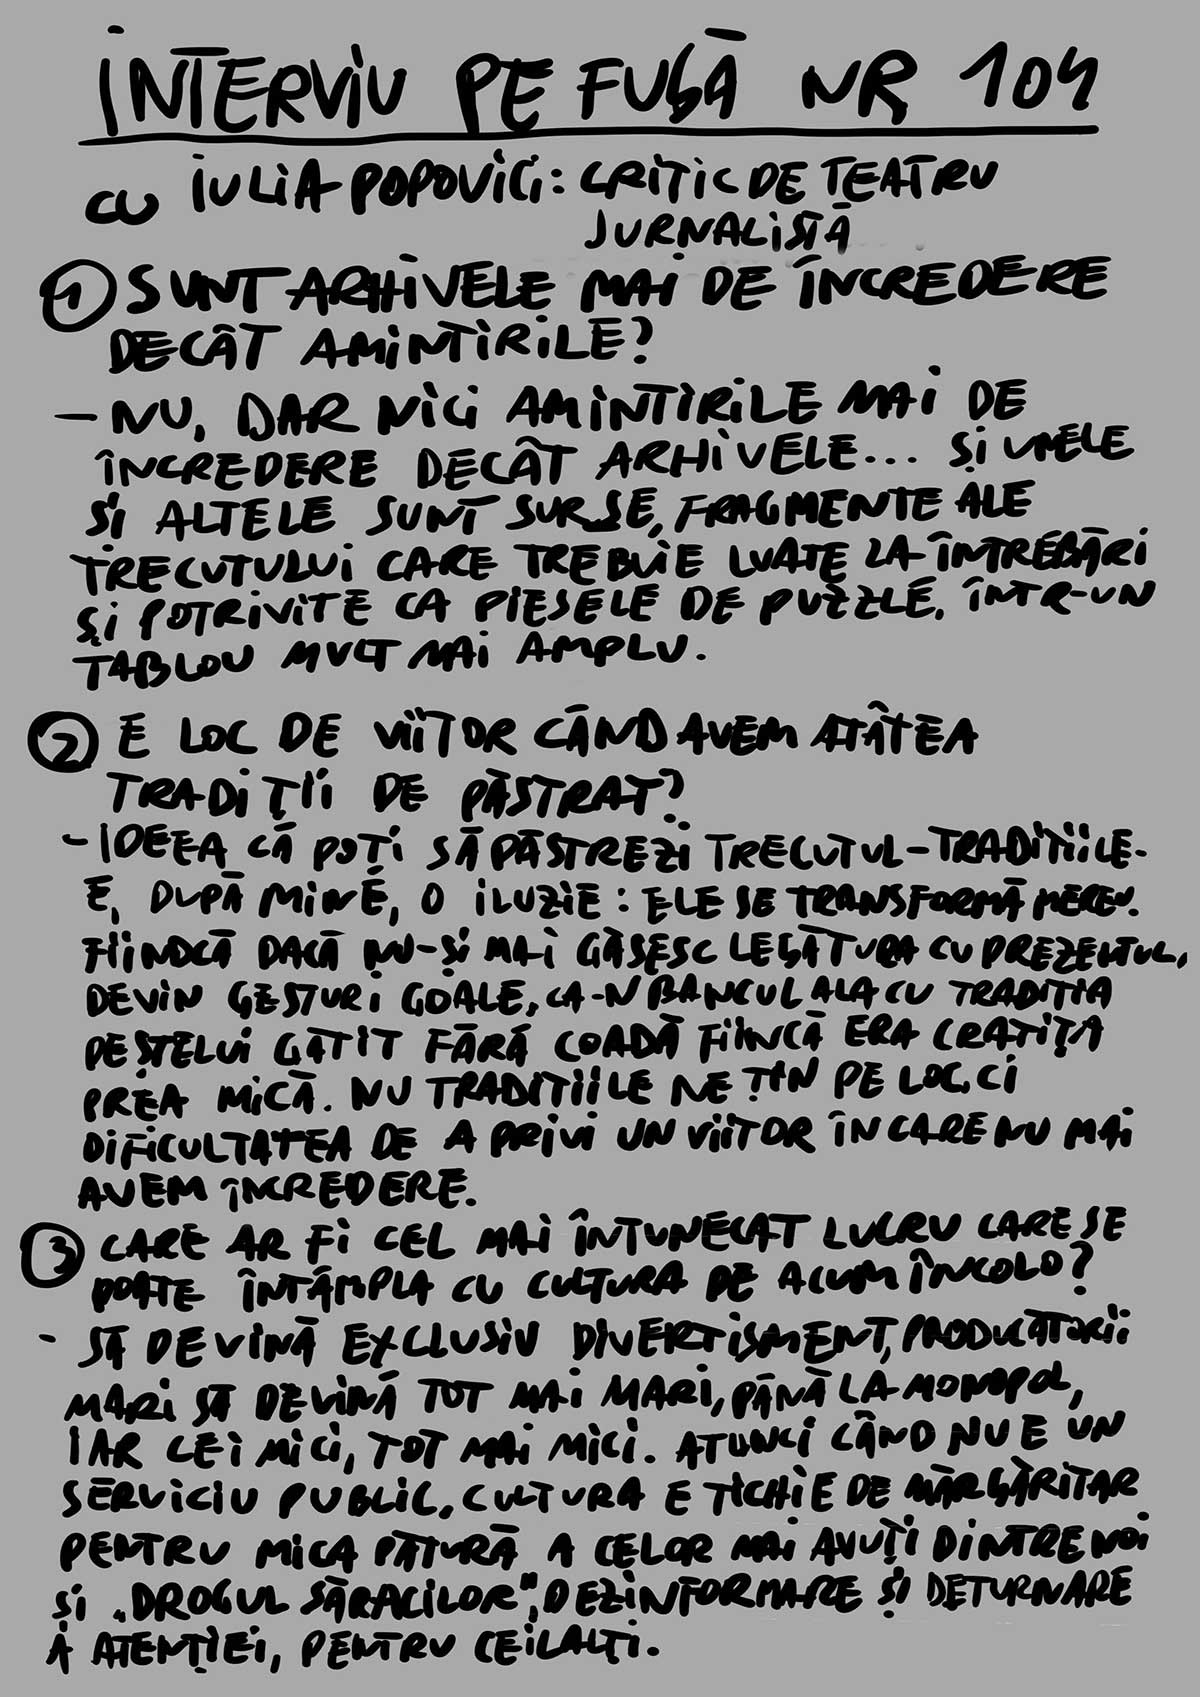 INTERVIU PE FUGĂ NR 104
CU IULIA POPOVICI: CRITIC DE TEATRU
JURNALISTĂ
1 SUNT ARHIVELE MAI DE ÎNCREDERE
DECÂT AMINTIRILE?
- NU, DAR NICI AMINTIRILE MAI DE
ÎNCREDERE DECÂT ARHIVELE... ȘI UNELE
ȘI ALTELE SUNT SURSE, FRAGMENTE ALE
TRECUTULUI CARE TREBUIE LUATE LA ÎNTREBĂRI
ȘI POTRIVITE CA PIESELE DE PUZZLE, ÎNTR-UN
TABLOU MULT MAI AMPLU.
2 E LOC DE VIITOR CÂND AVEM ATÂTEA
TRADIȚII DE PĂSTRAT?
- IDEEA CĂ POȚI SĂ PĂSTREZI TRECUTUL - TRADIȚIILE -
E, DUPĂ MINE, O ILUZIE: ELE SE TRANSFORMĂ MEREU.
FIINDCĂ DACĂ NU-ȘI MAI GĂSESC LEGĂTURA CU PREZENTUL,
DEVIN GESTURI GOALE, CA-N BANCUL ALA CU TRADIȚIA
PEȘTELUI GĂTIT FĂRĂ COADĂ FIINCĂ ERA CRATIȚA
PREA MICĂ. NU TRADIȚIILE NE ȚIN PE LOC, CI
DIFICULTATEA DE A PRIVI UN VIITOR ÎN CARE NU MAI
AVEM ÎNCREDERE.
3 CARE AR FI CEL MAI ÎNTUNECAT LUCRU CARE SE
POATE ÎNTÂMPLA CU CULTURA DE ACUM ÎNCOLO?
- SĂ DEVINĂ EXCLUSIV DIVERTISMENT, PRODUCĂTORII
MARI SĂ DEVINĂ TOT MAI MARI, PÂNĂ LA MONOPOL,
IAR CEI MICI, TOT MAI MICI. ATUNCI CÂND NU E UN
SERVICIU PUBLIC, CULTURA E TICHIE DE MĂRGĂRITAR
PENTRU MICA PĂTURĂ A CELOR MAI AVUȚI DINTRE NOI
ȘI „DROGUL SĂRACILOR", DEZINFORMARE ȘI DETURNARE
A ATENȚIEI, PENTRU CEILALȚI.